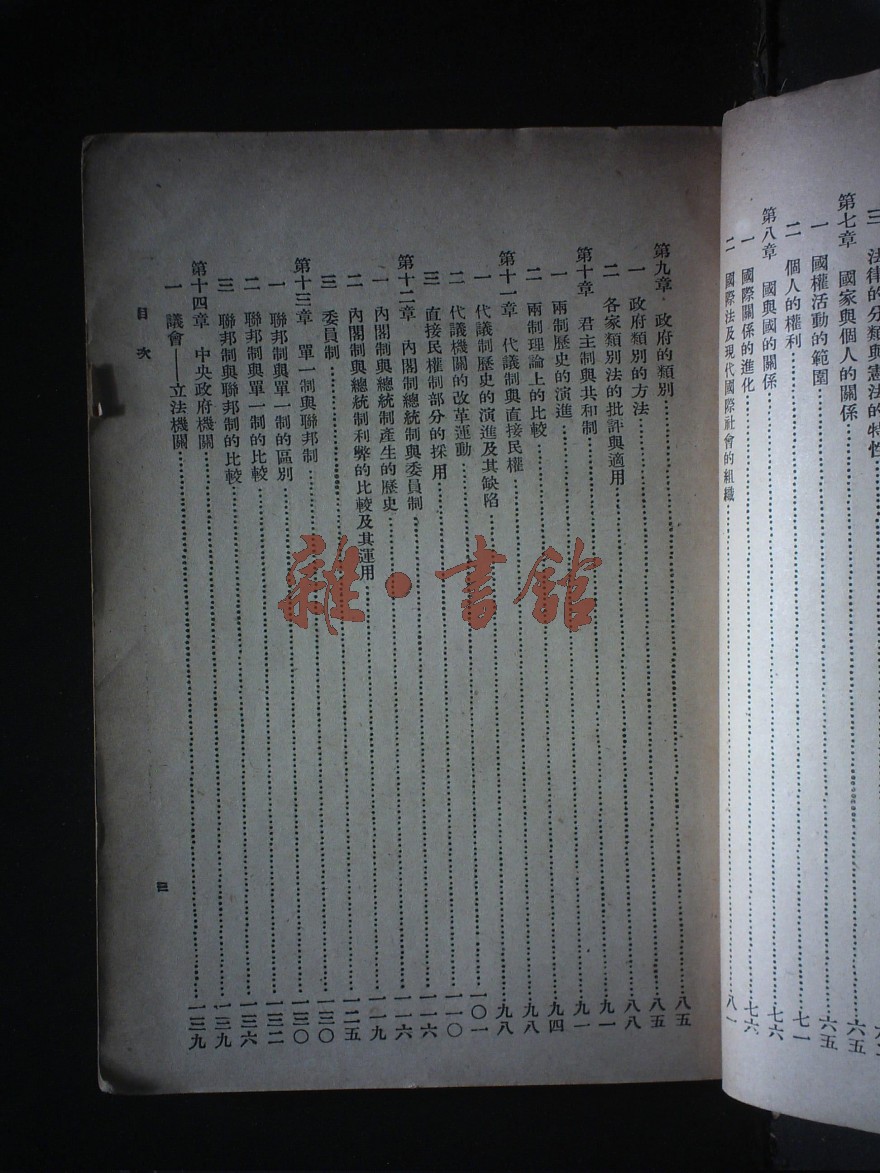 三 法律的分類與憲法的特性
第七章 國家與個人的關係……六五
一 國權活動的範圍……六五
二 個人的權利……七一
第八章 國與國的關係……七六
一 國際關係的進化……七六
二 國際法及現代國際社會的組織……八一
第九章 政府的類別……八五
一 政府類別的方法……八五
二 各家類別法的批評與適用……八八
第十章 君主制與共和制……九一
一 兩制歷史的演進……九一
二 兩制理論上的比較……九四
第十一章 代議制與直接民權……九八
一 代議制歷史的演進及其缺陷……九八
二 代議機關的改革運動……一〇一
三 直接民權制部分的採用……一一〇
第十二章 內閣制總統制與委員制……一一六
一 內閣制與總統制產生的歷史……一一六
二 內閣制與總統制利弊的比較及其運用……一一九
三 委員制……一二五
第十三章 單一制與聯邦制……一三〇
一 聯邦制與單一制的區別……一三〇
二 聯邦制與單一制的比較……一三二
三 聯邦制與聯邦制的比較……一三六
第十四章 中央政府機關……一三九
一 議會——立法機關……一三九
目次
三
雜·書館